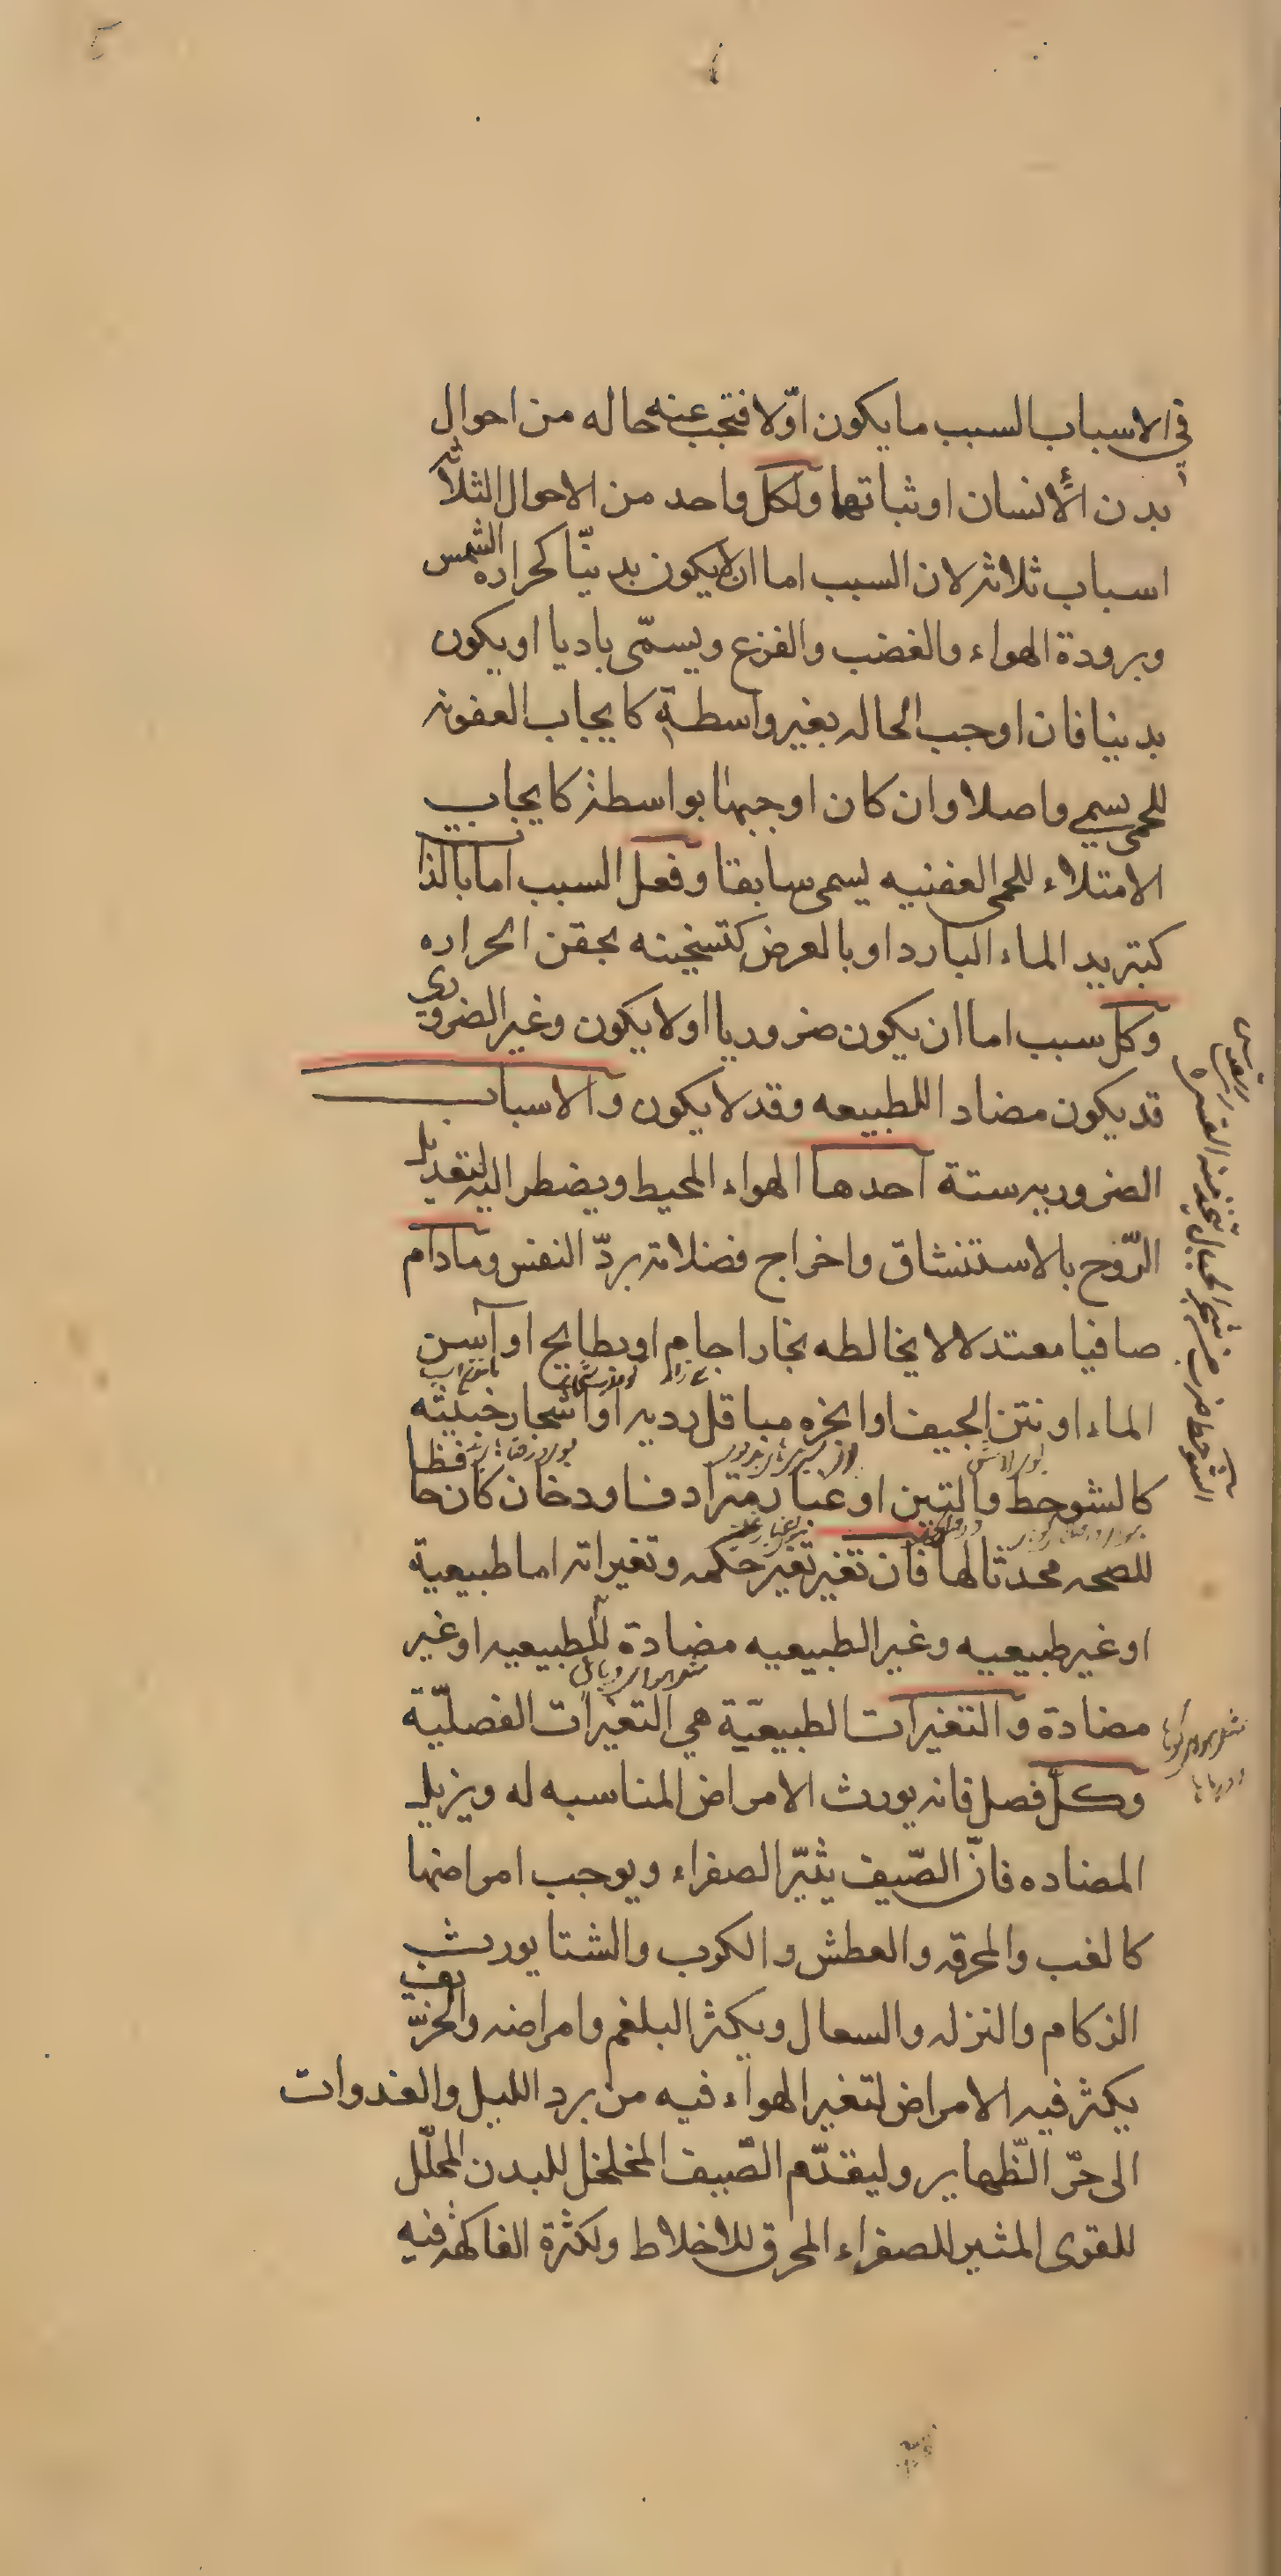 في الاسباب السبب ما يكون اوّلا فتجب عنه حاله من احوال
بدن الأنسان او ثباتها ولكل واحد من الاحوال الثلاثه
اسباب ثلاثه لان السبب اما ان لا يكون بدنيّا كحراره الشمس
وبرودة الهواء والغضب والفزع ويسمّى باديا او يكون
بدنيا فان اوجب الحاله بغير واسطة كايجاب العفونه
للحمى يسمى واصلا وان كان اوجبها بواسطه كايجاب
الامتلاء للحمى العفنيه يسمى سابقا وفعل السبب اما بالذا
كتبريد الماء البارد او بالعرض كتسخينه بحقن الحراره
وكل سبب اما ان يكون ضروريا اولا يكون وغير الضروري
قد يكون مضادا للطبيعه وقد لا يكون والاسباب
الضروريه ستة احدها الهواء المحيط ويضطر اليه لتعديل
الرّوح بالاستنشاق واخراج فضلاته بردّ النفس ومادام
صافيا معتدلا لا يخالطه بخار اجام او بطايح او آسن
الماء او نتن الجيف او ابخره مباقل رديه او اشجار خبيثه
كالشوحط والتين او غبار مترادف او دخان كان حافظا
للصحه محدثا لها فان تغير تغير حكمه وتغيراته اما طبيعية
او غير طبيعيه وغير الطبيعيه مضادة للطبيعيه او غير
مضادة والتغيرات الطبيعيّة هي التغيرات الفصليّة
وكلّ فصل فانه يورث الامراض المناسبه له ويزيل
المضاده فانّ الصّيف يثيّر الصفراء ويوجب امراضها
كالغب والمحرقه والعطش والكرب والشتا يورث
الزكام والنزله والسعال ويكثر البلغم وامراضه والخريف
يكثر فيه الامراض لتغير الهواء فيه من برد الليل والغدوات
الى حرّ الظّهاير وليقدّم الصّيف المخلخل للبدن المحلّل
للقوى المثير للصفراء المحرق للاخلاط ولكثرة الفاكهه فيه
الشوحط ضرب من شجر الجبال يتخذ منه القسى